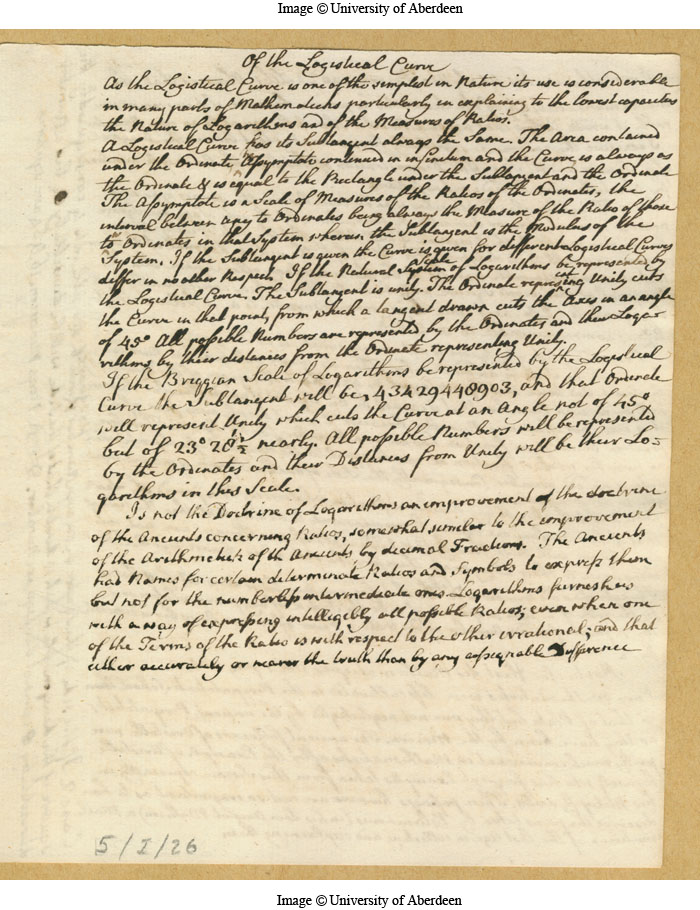 Image © University of Aberdeen
Of the Logistical Curve
As the Logistical Curve is one of the simplest in Nature its use is considerable
in many parts of Mathematicks particularly in explaining to the lowest capacities
the Nature of Logarithms and of the Measures of Ratios.
A Logistical Curve has its Subtangent always the Same. The Area contained
under the Ordinate Assymptote continued in infinitum and the Curve is always as
the Ordinate & is equal to the Rectangle under the Subtangent and the Ordinate
The Assymptote is a Scale of Measures of the Ratios of the Ordinates, the
interval between any to Ordinates being always the Measure of the Ratio of those
to Ordinates in that System wherein the Subtangent is the Modulus of the
System. If the Subtangent is given the Curve is given for different Logistical Curves
differ in no other Respect. If the Natural Scale of Logarithms be represented by
the Logistical Curve. The Subtangent is unity. The Ordinate representing Unity cuts
the Curve in that point, from which a tangent drawn cuts the Axis in an angle
of 45° All possible Numbers are represented by the Ordinates and their Loga-
rithms by their distances from the Ordinate representing Unity
If the Briggian Scale of Logarithms be represented by the Logistical
Curve the Subtangent will be ,43429448903, and that Ordinate
will represent Unity which cuts the Curve at an Angle not of 45°
but of 23° 28'½ nearly. All possible Numbers will be represented
by the Ordinates and their Distances from Unity will be their Lo=
garithms in this Scale.
Is not the Doctrine of Logarithms an improvement of the doctrine
of the Ancients concerning Ratios, somewhat similar to the improvement
of the Arithmetick of the Ancients by decimal Fractions. The Ancients
had Names for certain determinate Ratios and Symbols to express them
but not for the numberless intermediate ones Logarithms furnish us
with a way of expressing intelligibly all possible Ratios; even when one
of the Terms of the Ratio is with respect to the other irrational; and that
either accurately or nearer the truth than by any assignable Difference
5/I/26
Image © University of Aberdeen